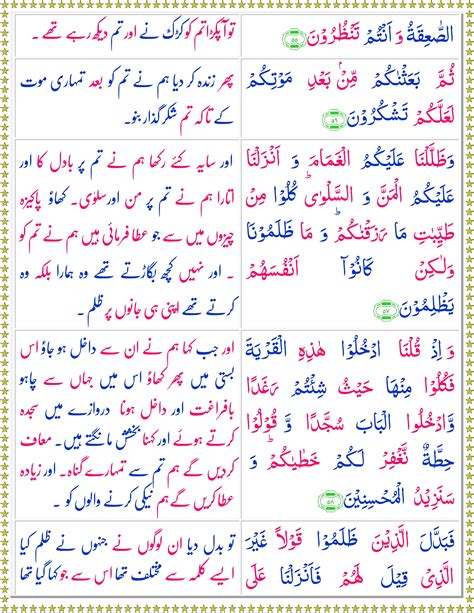 الصّٰعِقَةُ وَ اَنْتُمْ تَنْظُرُوْنَ ﴿۵۵﴾
تو آپکڑا تم کو کڑک نے اور تم دیکھ رہے تھے ۔
ثُمَّ بَعَثْنٰكُمْ مِّنْۢ بَعْدِ مَوْتِكُمْ
لَعَلَّكُمْ تَشْكُرُوْنَ ﴿۵۶﴾
پھر زندہ کر دیا ہم نے تم کو بعد تمہاری موت
کے تاکہ تم شکر گذار بنو ۔
وَظَلَّلْنَا عَلَيْكُمُ الْغَمَامَ وَ اَنْزَلْنَا
عَلَيْكُمُ الْمَنَّ وَ السَّلْوٰى ؕ كُلُوْا مِنْ
طَيِّبٰتِ مَا رَزَقْنٰكُمْ ؕ وَ مَا ظَلَمُوْنَا
وَلٰكِنْ كَانُوْۤا اَنْفُسَهُمْ
يَظْلِمُوْنَ ﴿۵۷﴾
اور سایہ کئے رکھا ہم نے تم پر بادل کا اور
اتارا ہم نے تم پر من اور سلوٰی ۔ کھاؤ پاکیزہ
چیزوں میں سے جو عطا فرمائی ہیں ہم نے تم کو
۔ اور نہیں کچھ بگاڑتے تھے وہ ہمارا بلکہ وہ
کرتے تھے اپنی ہی جانوں پر ظلم ۔
وَ اِذْ قُلْنَا ادْخُلُوْا هٰذِهِ الْقَرْيَةَ
فَكُلُوْا مِنْهَا حَيْثُ شِئْتُمْ رَغَدًا
وَّادْخُلُوا الْبَابَ سُجَّدًا وَّ قُوْلُوْا
حِطَّةٌ نَّغْفِرْ لَكُمْ خَطٰيٰكُمْ ؕ وَ
سَنَزِيْدُ الْمُحْسِنِيْنَ ﴿۵۸﴾
اور جب کہا ہم نے ان سے داخل ہو جاؤ اس
بستی میں پھر کھاؤ اس میں جہاں سے چاہو
بافراغت اور داخل ہونا دروازے میں سجدہ
کرتے ہوئے اور کہنا بخشش مانگتے ہیں ۔ معاف
کردیں گے ہم تم سے تمہارے گناہ ۔ اور زیادہ
دیں گے ہم نیکی کرنے والوں کو ۔
فَبَدَّلَ الَّذِيْنَ ظَلَمُوْا قَوْلًا غَيْرَ
الَّذِىْ قِيْلَ لَهُمْ فَاَنْزَلْنَا عَلَى
تو بدل دیا ان لوگوں نے جنہوں نے ظلم کیا
ایسے کلمہ سے مختلف تھا اس سے جو کہا گیا تھا